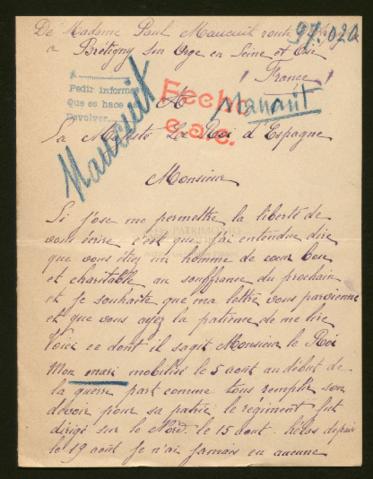 De Madame Paul Maucuit route
97.020
a Brétigny sur Orge en Seine et Oise
(France)
A
Pedir informes
Que es hace
Devolver
Fecha
Maucuit
Maucuit
A
Sa Majesté Le Roi d'Espagne
Monsieur
Si j'ose me permettre la liberté de
vous écrire c'est que j'ai entendue dire
que vous étiez un homme de cœur bon
et charitable au souffrance du prochain
et je souhaite que ma lettre vous parvienne
et que vous ayez la patience de me lire
Voici ce dont il sagit Monsieur le Roi
Mon mari mobilisé le 5 août au début de
la guerre part comme tous remplir son
devoir pour sa patrie le régiment fut
dirigé sur le Nord le 15 août hélas depuis
le 19 août je n'ai jamais eu aucune